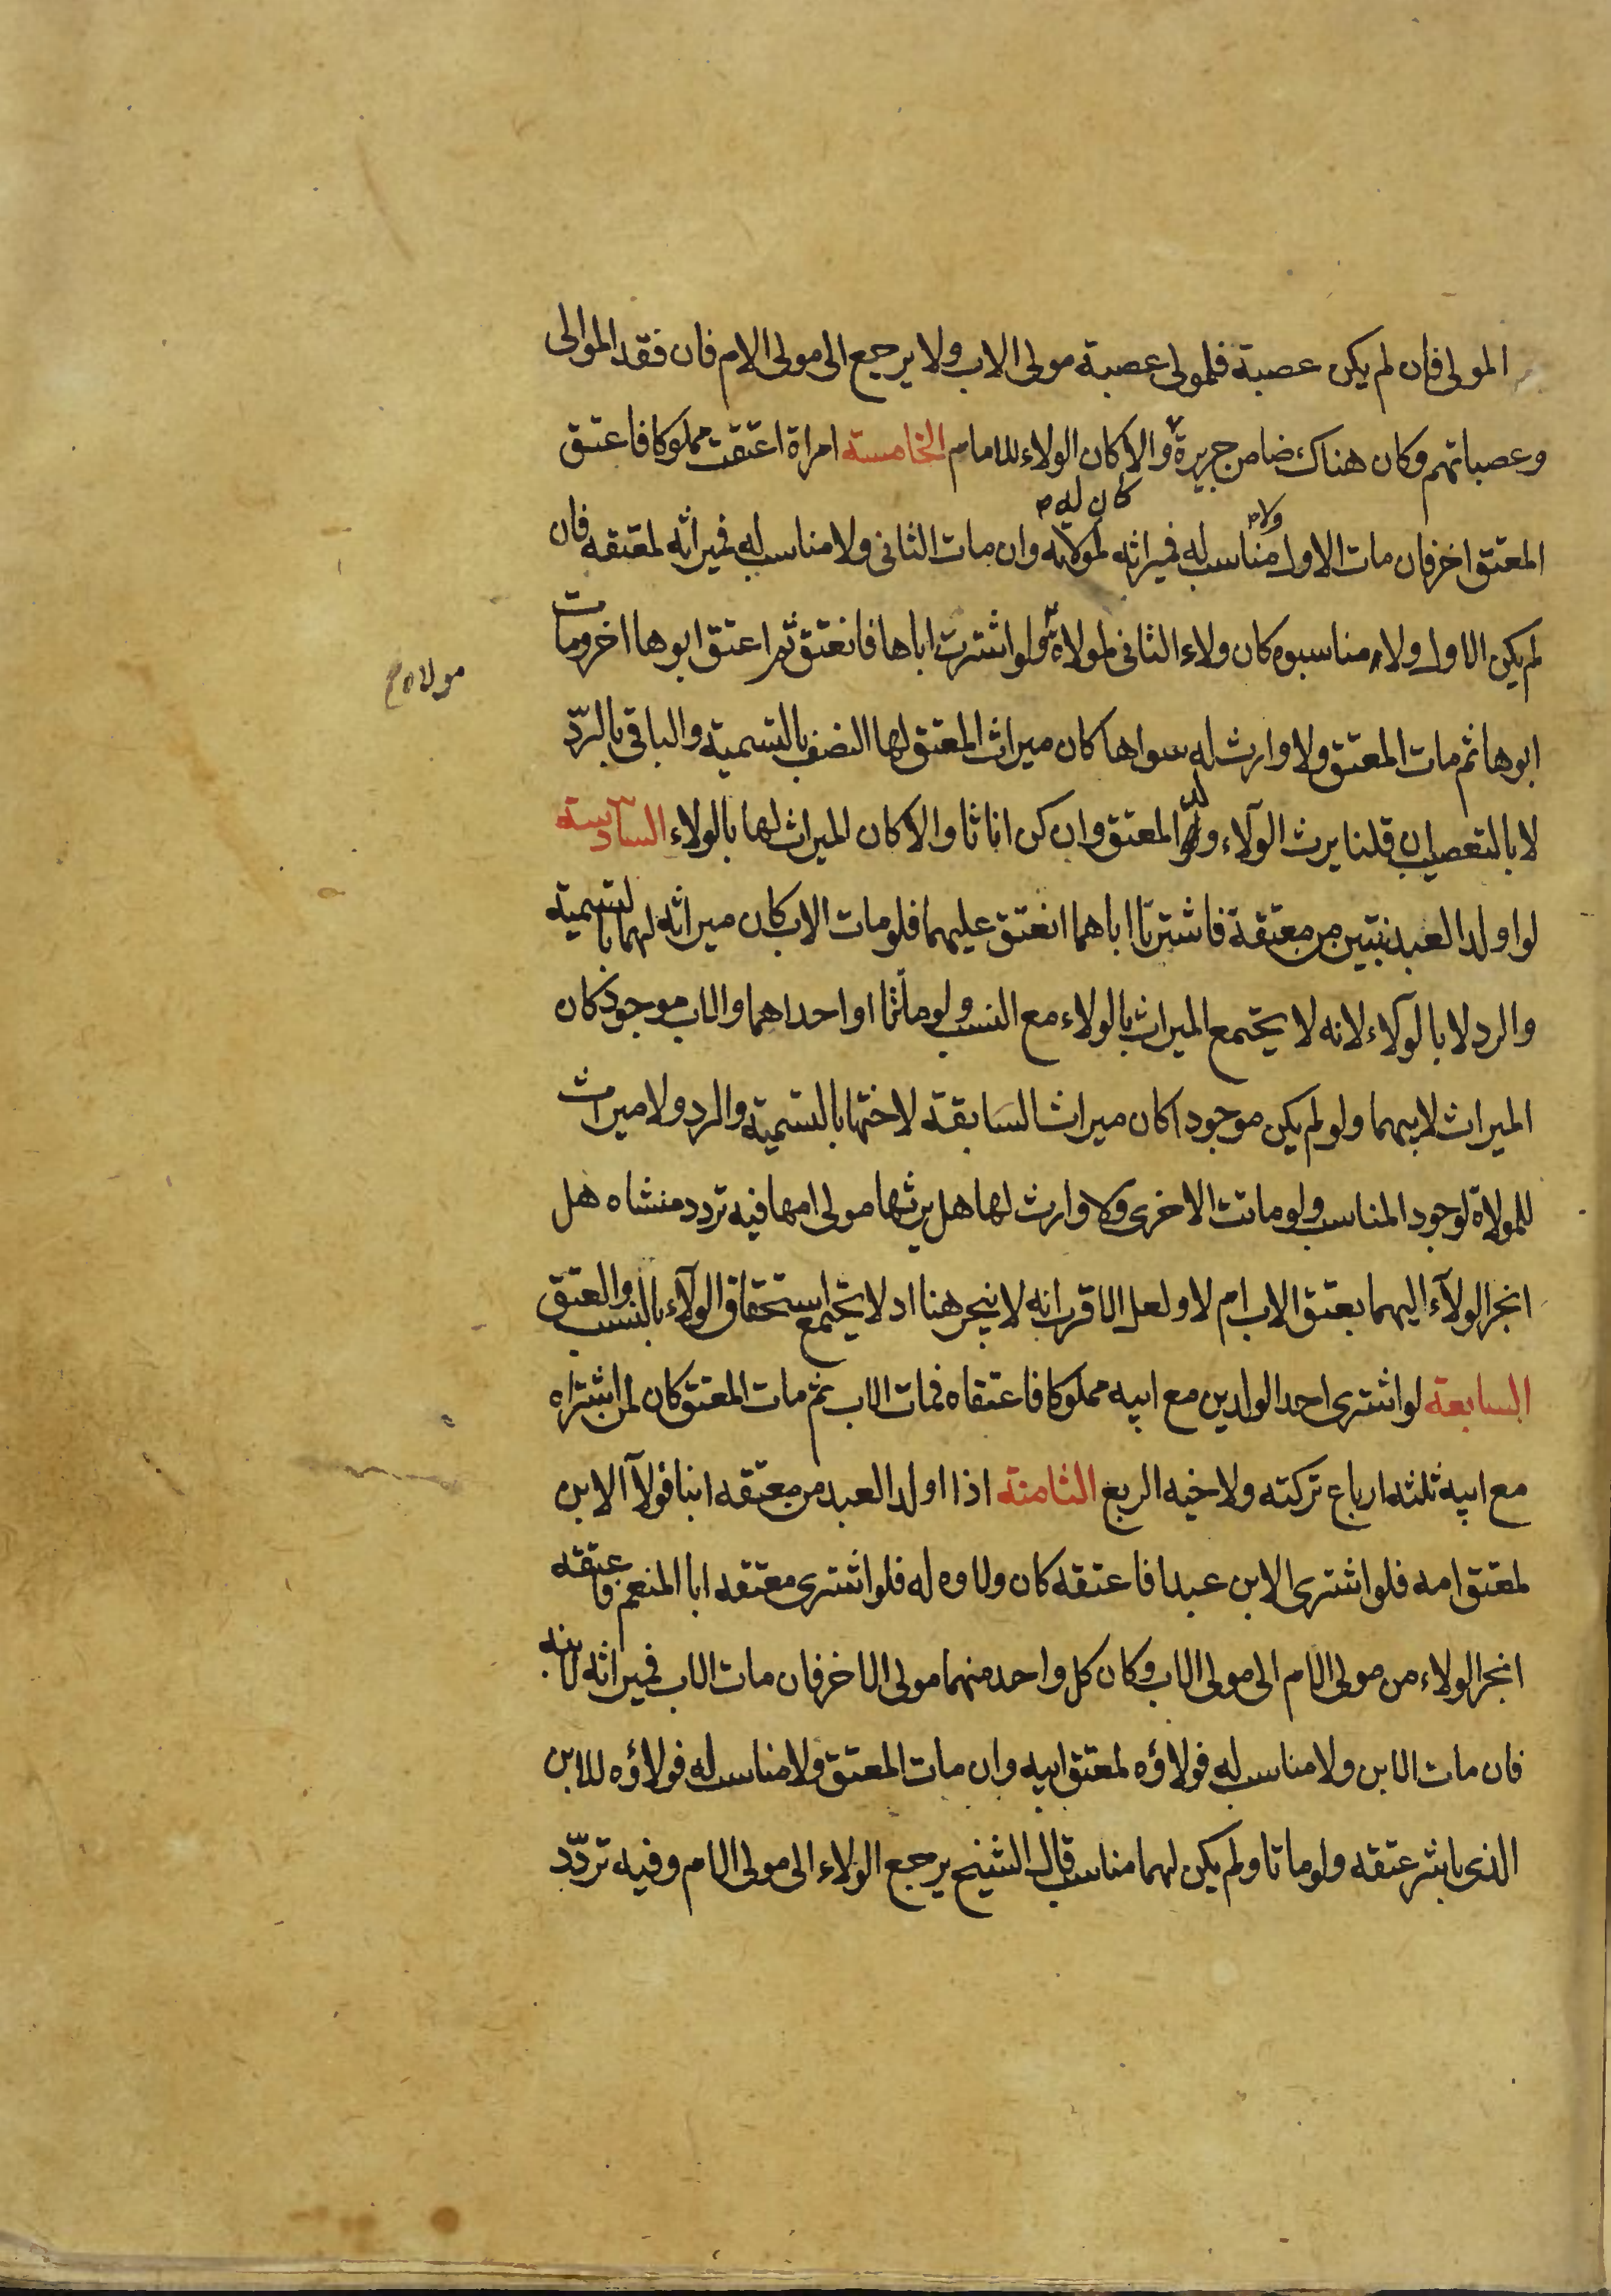 المولى فان لم يكن عصبة فلمولى عصبة مولى الاب ولا يرجع الى مولى الام فان فقد الموالى
وعصباتهم وكان هناك ضامن جريرة والا كان الولاء للامام الخامسة امراة اعتقت مملوكا فاعتق
كان له
ولا
المعتق اخر فان مات الاول مناسب له فميراثه لمولاته وان مات الثانى ولا مناسب له فميراثه لمعتقه فان
لم يكن الاول ولا مناسبوه كان ولاء الثانى لمولاة ولو اشترت اباها فانعتق ثم اعتق ابوها اخر ومات
مولاه
ابوها ثم مات المعتق ولا وارث له سواها كان ميراث المعتق لها النصف بالتسمية والباقى بالردّ
لا بالتعصيب ان قلنا يرث الولآء المعتق وان كن اناثا والا كان الميراث لها بالولاء السادسة
لو اولد العبد بنتين من معتقة فاشترتا اباهما انعتق عليهما فلو مات الاب كان ميراثه لهما بالتسمية
والرد لا بالولآء لانه لا يجتمع الميراث بالولاء مع النسب ولو ماتتا او احداهما والاب موجود كان
الميراث لابيهما ولو لم يكن موجودا كان ميراث السابقة لاختها بالتسمية والرد ولا ميراث
للمولاة لوجود المناسب ولو ماتت الاخرى ولا وارث لها هل يرثها مولى امها فيه تردد منشاه هل
انجر الولآء اليهما بعتق الاب ام لا ولعل الاقرب انه لا ينجر هنا اد لا يجتمع استحقاق الولآء بالنسب والعتق
السابعة لو اشترى احد الولدين مع ابيه مملوكا فاعتقاه فمات الاب ثم مات المعتق كان لمن اشتراه
مع ابيه ثلثه ارباع تركته ولاخيه الربع الثامنة اذا اولد العبد من معتقه ابنا فولآ الابن
لمعتق امه فلو اشترى الابن عبدا فاعتقه كان ولاوه له فلو اشترى معتقه ابا المنعم فاعتقه
انجر الولاء من مولى الام الى مولى الاب وكان كل واحد منهما مولى الاخر فان مات الاب فميراثه لابنه
فان مات الابن ولا مناسب له فولاؤه لمعتق ابيه وان مات المعتق ولا مناسب له فولاؤه للابن
الذى باشر عتقه ولو ماتا ولم يكن لهما مناسب قال الشيخ يرجع الولاء الى مولى الام وفيه تردّد